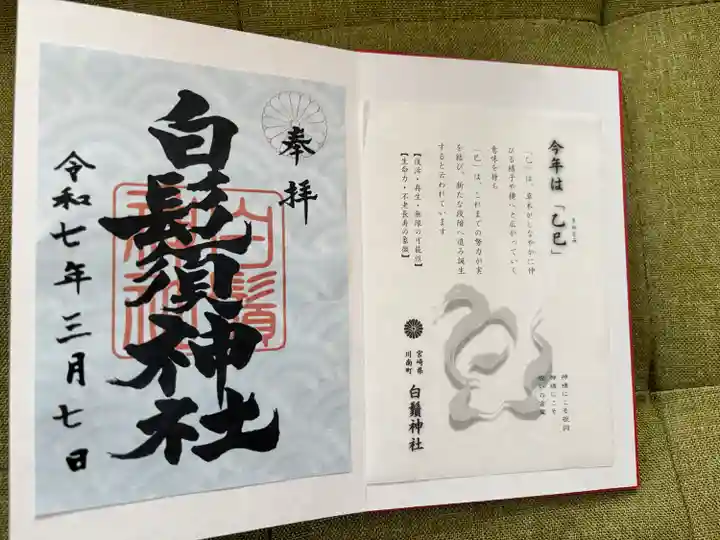 奉拝
白鬚須神社
令和七年三月七日
今年は「乙巳」
「乙」は、草木がしなやかに伸
びる様子や横へと広がっていく
意味を持ち
「巳」は、これまでの努力が実
を結び、新たな段階へ進み誕生
すると云われています
【復活・再生・無限の可能性】
【生命力・不老長寿の象徴】
宮崎県
川南町
白鬚神社
神様にこそ